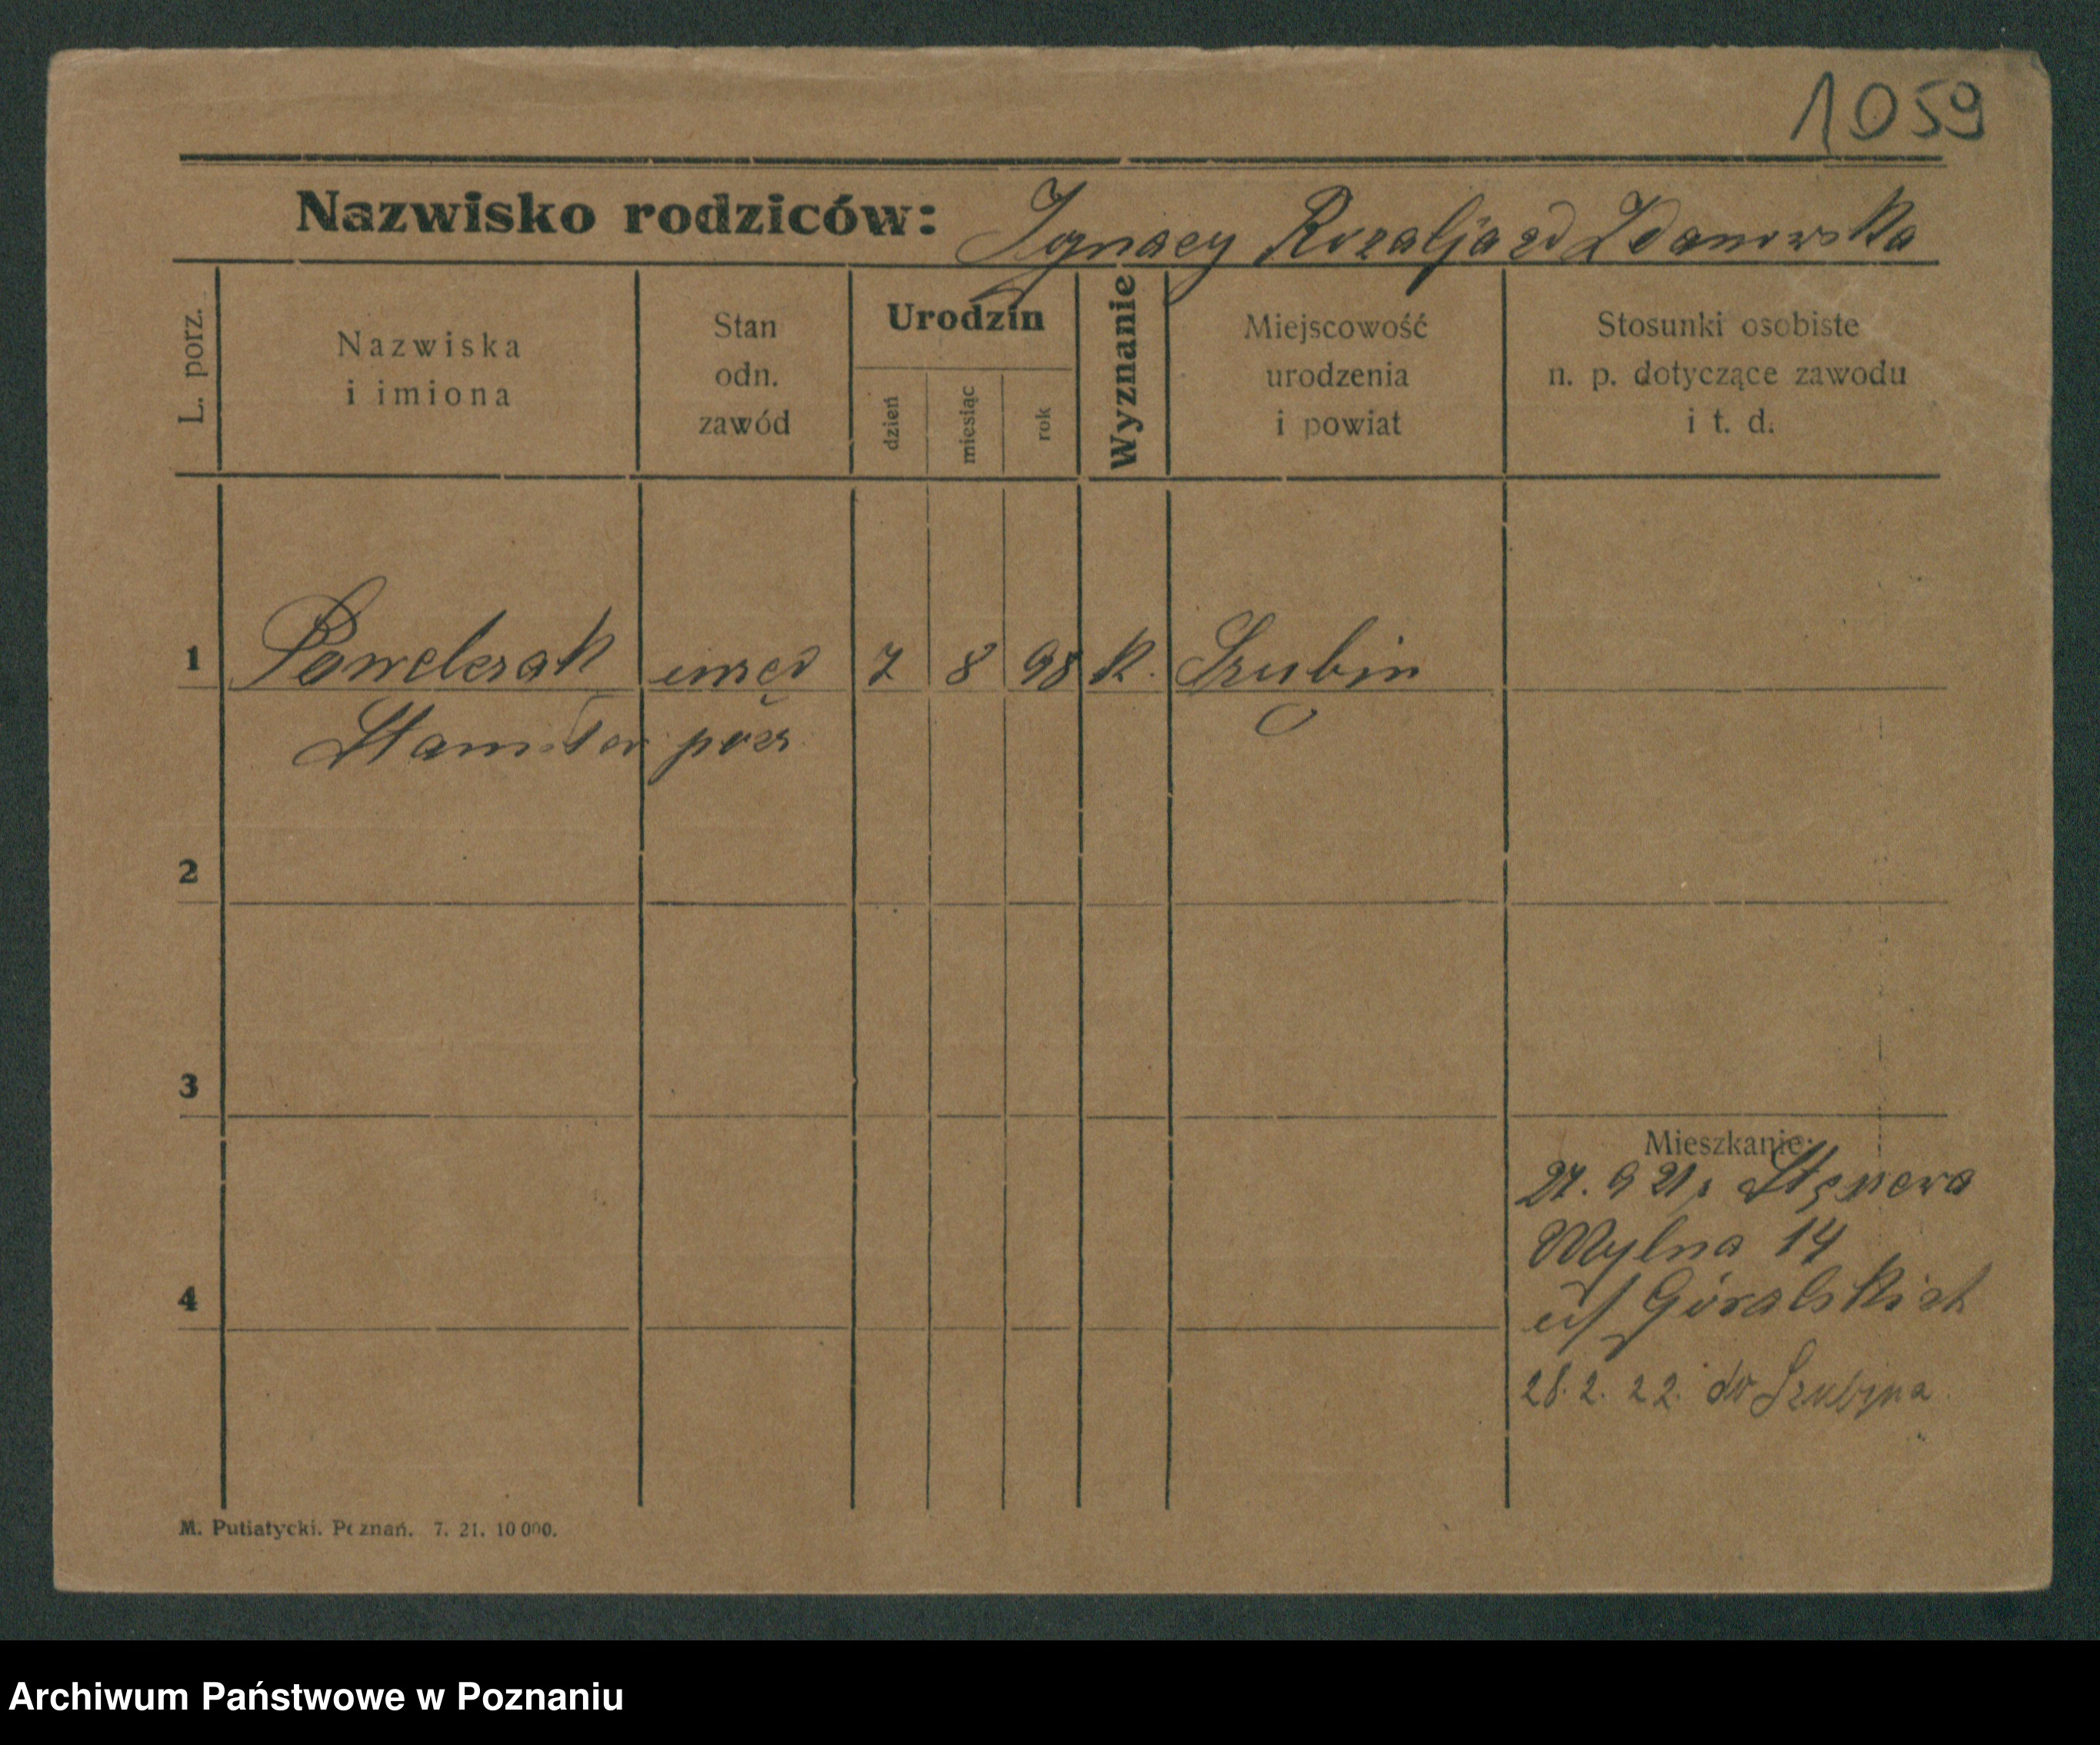 1059
Nazwisko rodziców: Ignacy Rozalja zd Zdanowska
L. porz.
Nazwiska
i imiona
Stan
odn.
zawód
Urodzin
dzień
miesiąc
rok
Wyznanie
Miejscowość
urodzenia
i powiat
Stosunki osobiste
n. p. dotyczące zawodu
i t. d.
1 Pawelczak urzęd 7 8 98 k. Szubin
2
3
Mieszkanie:
27. 9 21
Wylna 14
u/ Góralskich
4
28. 2. 22. do Szubina
M. Putiatycki. Poznań. 7. 21. 10 000.
Archiwum Państwowe w Poznaniu